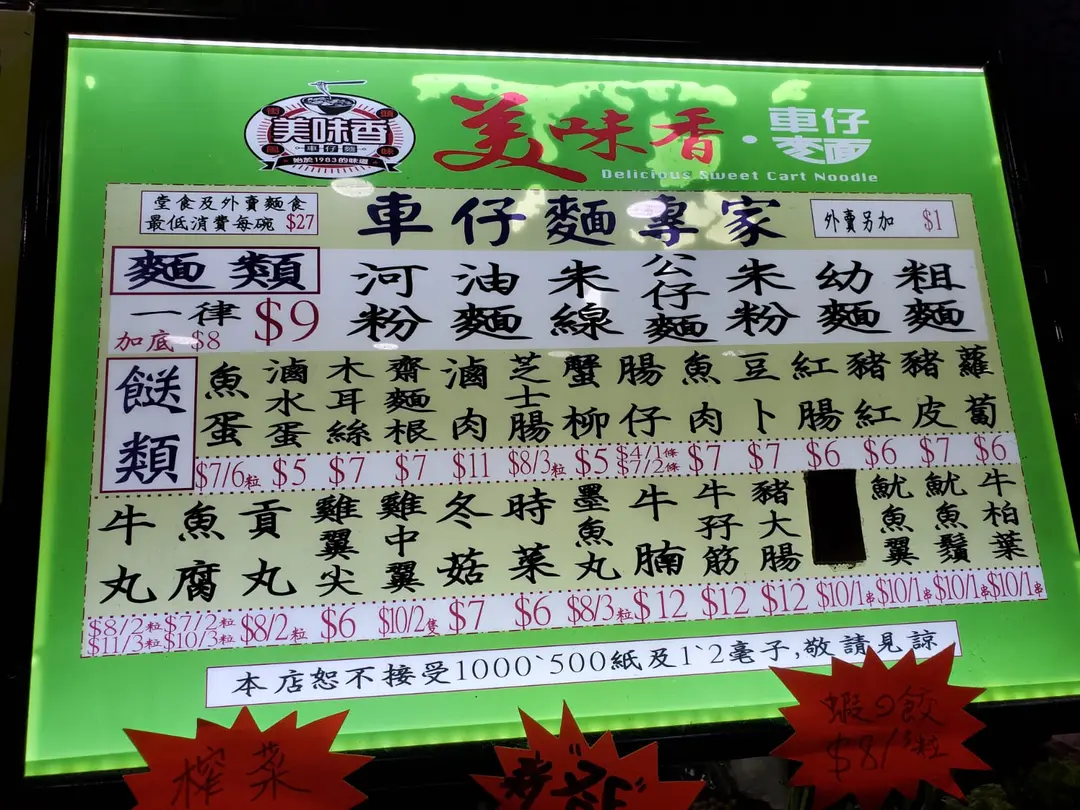 街頭風味
美味香
車仔麵
始於1983的味道
美味香·車仔麵
Delicious Sweet Cart Noodle
堂食及外賣麵食
最低消費每碗 $27
車仔麵專家
外賣另加 $1
麵類
一律 $9
加底 $8
河粉 油麵 米線 公仔麵 米粉 幼麵 粗麵
餸類
魚蛋 滷水蛋 木耳絲 齋麵根 滷肉 芝士腸 蟹柳 腸仔 魚肉 豆卜 紅腸 豬紅 豬皮 蘿蔔
$7/6粒 $5 $7 $7 $11 $8/3粒 $5 $4/1條 $7/2條 $7 $7 $6 $6 $7 $6
牛丸 魚腐 貢丸 雞翼尖 雞中翼 冬菇 時菜 墨魚丸 牛腩 牛孖筋 豬大腸 魷魚翼 魷魚鬚 牛柏葉
$8/2粒 $11/3粒 $7/2粒 $10/3粒 $8/2粒 $6 $10/2隻 $7 $6 $8/3粒 $12 $12 $12 $10/1串 $10/1串 $10/1串 $10/1串
本店恕不接受1000`500紙及1`2毫子,敬請見諒
榨菜
$8/3粒